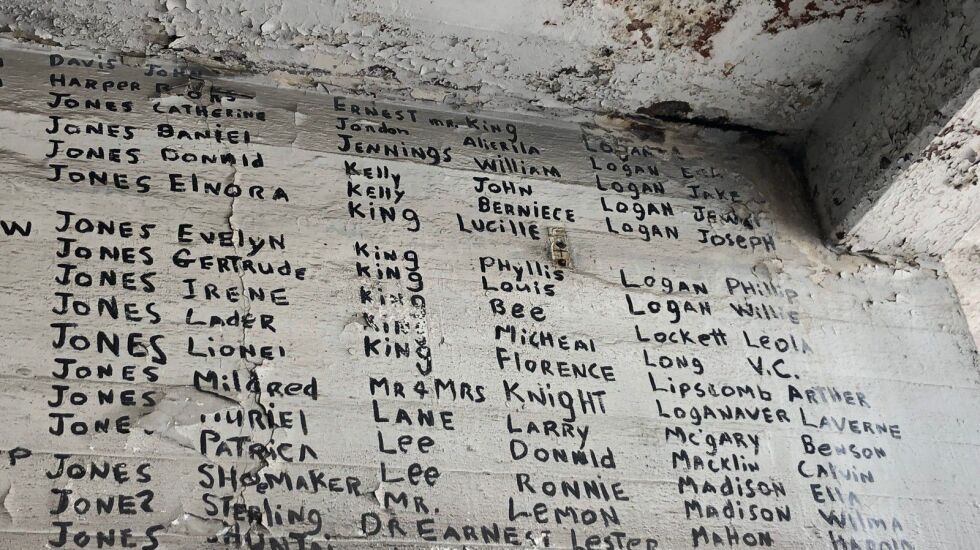 W
P
DAVIS JOHN
HARPER
JONES CATHERINE
JONES DANIEl
JONES DONNld
JONES ElNORA
JONES EvElyN
JONES GERTRUdE
JONES IRENE
JONES LADER
JONES LIONEl
JONES MildREd
JONES
PATRICA
JONES SHOEMAKER
JONES STERLINg
JONES
ERNEST MR. KINg
JONdON AliERllA
JENNINgS William
KElly JOHN
KElly BERNIECE
KINg LUCILLE
KINg PHyllIS
KINg LOUIS
KINg BEE
KINg MICHEAl
KINg FLORENCE
MR & MRS KNIgHT
LANE LARRY
LEE DONNld
LEE RONNIE
MR. LEMON
DR EARNEST LESTER
LOgAN
LOgAN
LOgAN JAKE
LOgAN
LOgAN JOSEPH
LOgAN PHIllIP
LOgAN WIllIE
LOCKETT LEOLA
LONg V.C.
LIPSCOMB ARTHER
LOgANAVER LAVERNE
Mc'gARY BENSON
MACKLIN CALVIN
MADISON EllA
MADISON WILMA
MAHON HAROLD